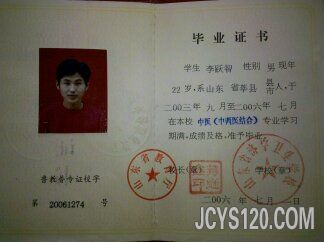 毕业证书
学生 李跃智 性别 男 现年
22岁,系山东 省莘县 县市 人,于
二〇〇三年 九 月至二〇〇六年 七 月
在本校 中医(中西医结合) 专业学习
期满,成绩及格,准予毕业。
校长(章) 学校(章)
二〇〇六 年 七 月
鲁教券专证校字
第 20061274 号
山东省教育厅
JCYS120.COM